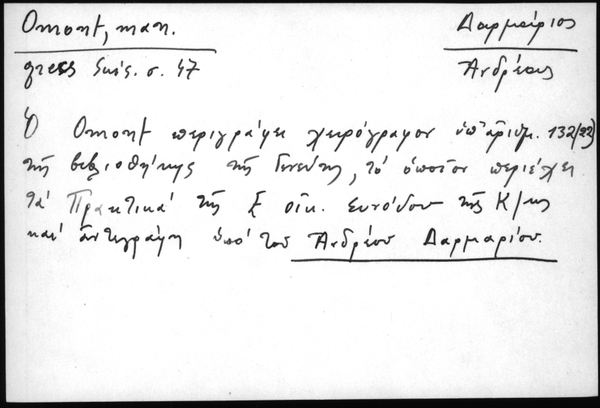 Omont, man.
Δαρμάριος
grecs Suis. σ. 47
Ἀνδρέας
Ὁ Omont περιγράφει χειρόγραφον ὑπ' ἀριθμ. 132(22)
τῆς βιβλιοθήκης τῆς Γενεύης, τό ὁποῖον περιέχει
τά Πρακτικά τῆς οἰκ. Συνόδου τῆς Κ/πης
καί ἀντεγράφη ὑπό τοῦ Ἀνδρέου Δαρμαρίου.